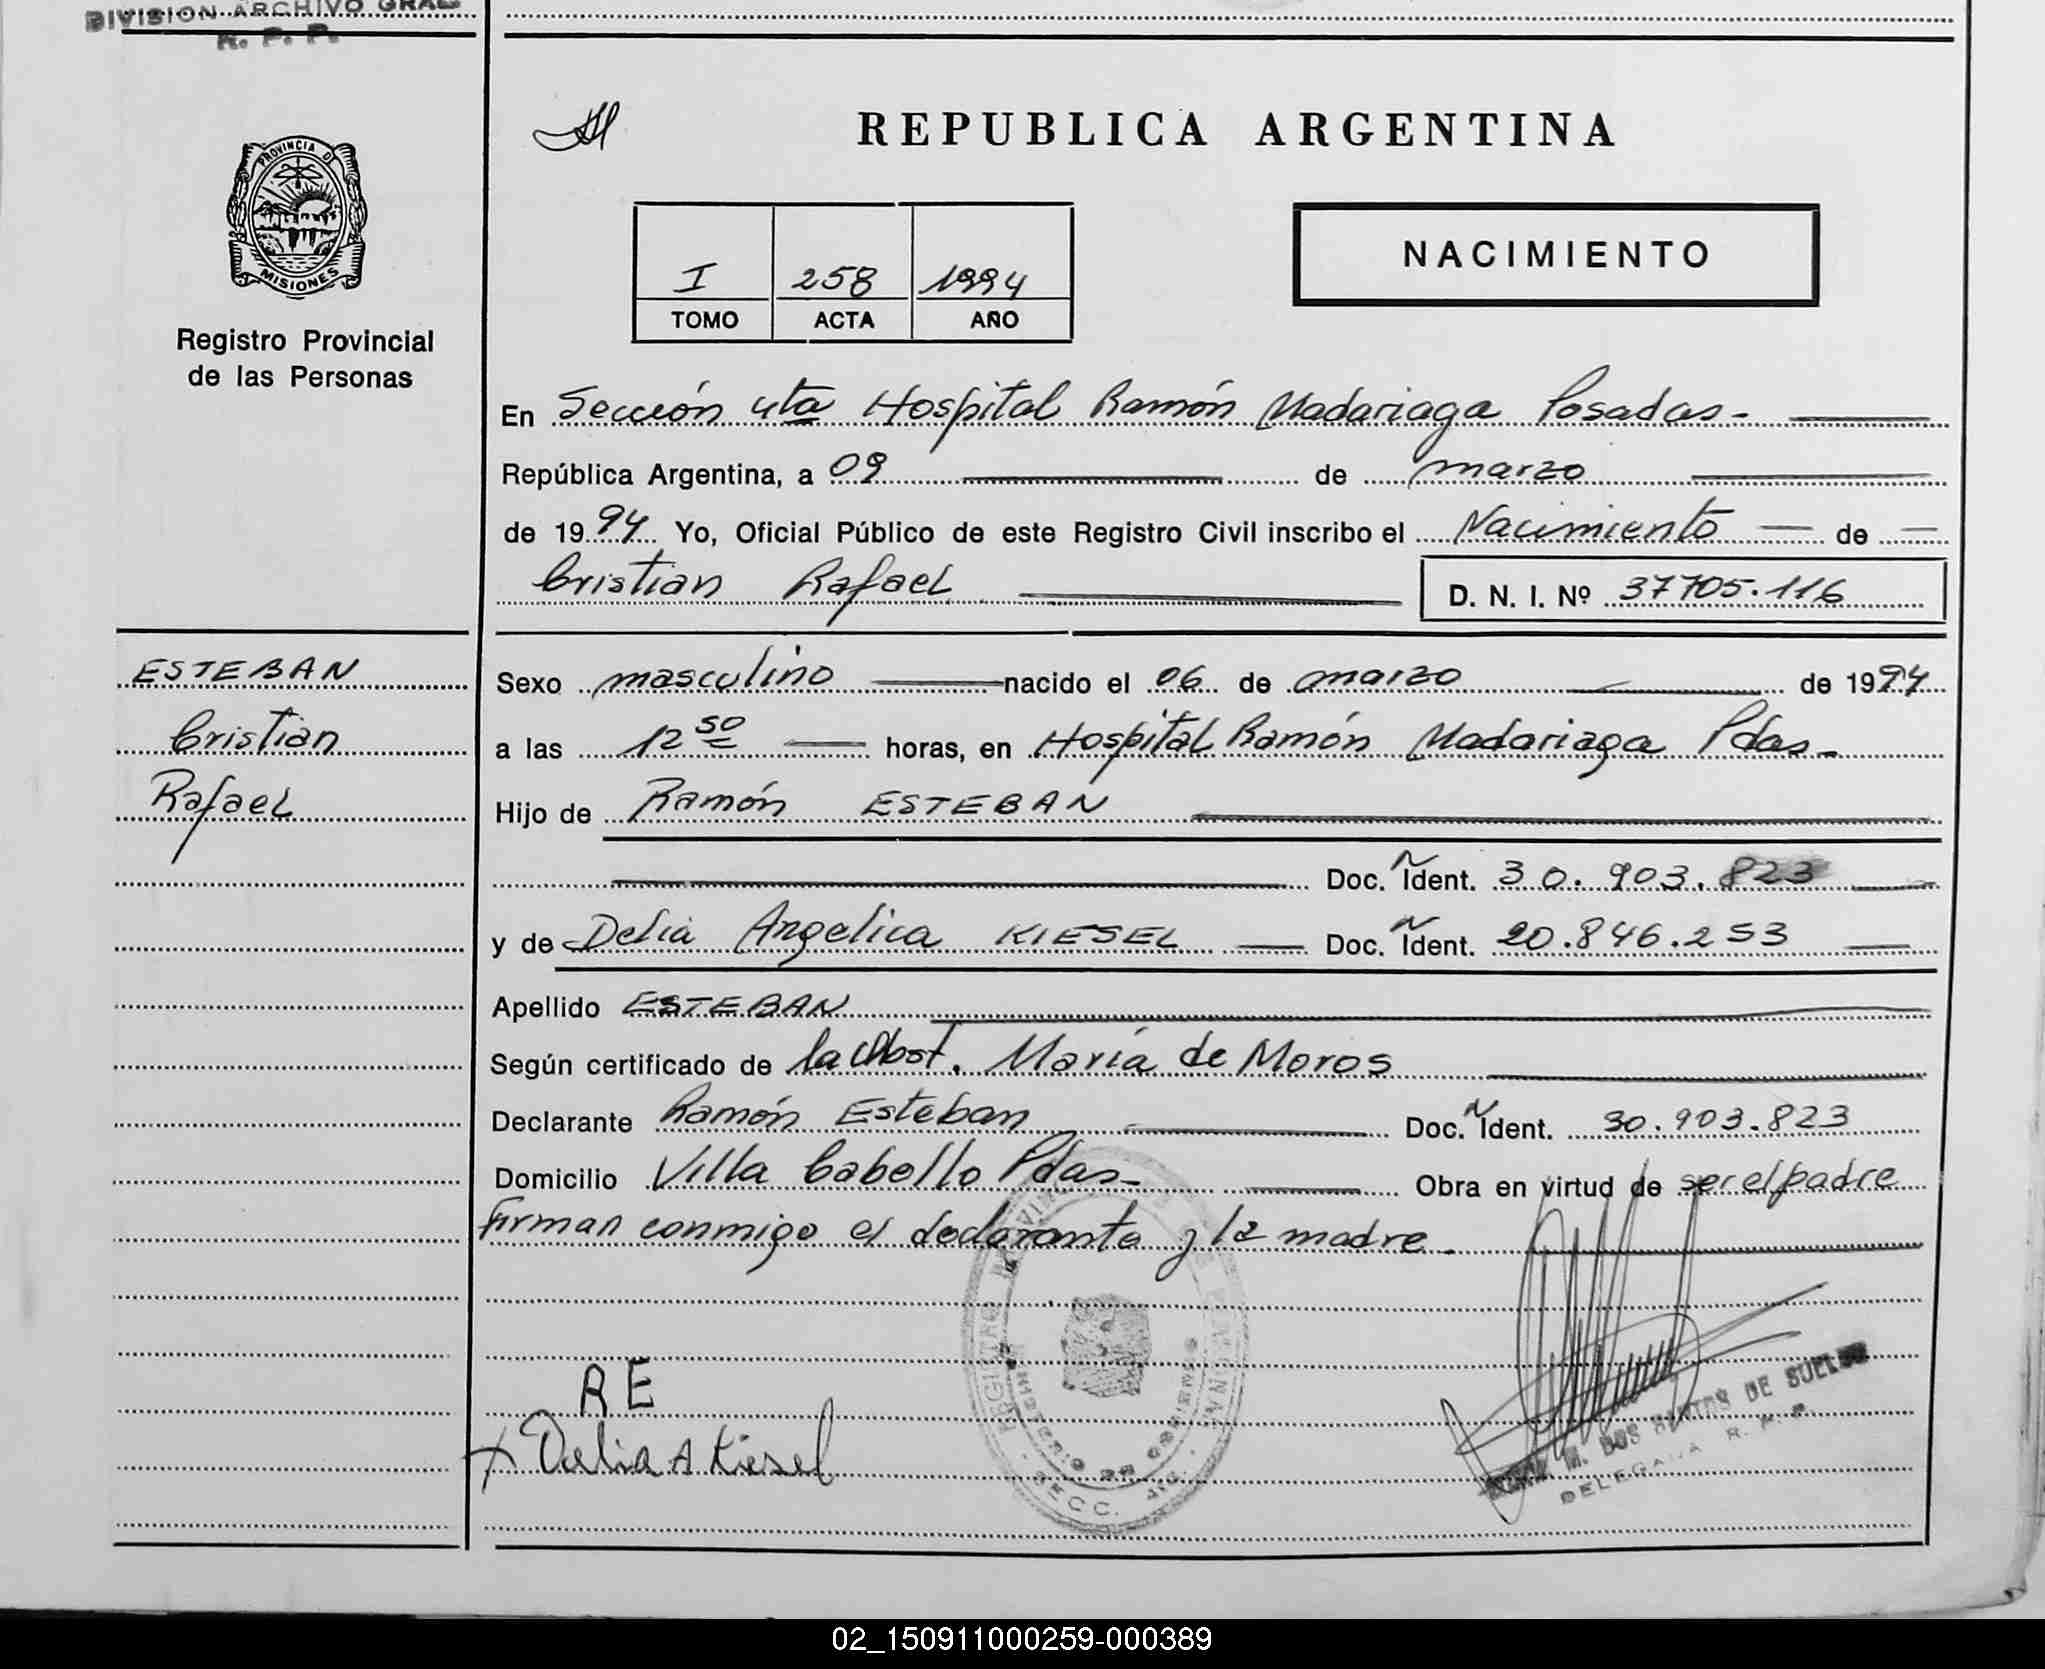 DIVISION ARCHIVO GRAL
R. P. P.
PROVINCIA DE
MISIONES
Registro Provincial
de las Personas
ESTEBAN
Cristian
Rafael
REPUBLICA ARGENTINA
I 258 1994
TOMO ACTA AÑO
NACIMIENTO
En Sección 4ta Hospital Ramón Madariaga Posadas-
República Argentina, a 09 de marzo
de 1994 Yo, Oficial Público de este Registro Civil inscribo el Nacimiento de
Cristian Rafael D. N. I. Nº 37705.116
Sexo masculino nacido el 06 de marzo de 1994
a las 12 50 horas, en Hospital Ramón Madariaga Pdas-
Hijo de Ramón ESTEBAN
Doc. N Ident. 30.903.823
y de Delia Angelica KIESEL Doc. N Ident. 20.846.253
Apellido ESTEBAN
Según certificado de la Obst. María de Moros
Declarante Ramón Esteban Doc. N Ident. 30.903.823
Domicilio Villa Cabello Pdas- Obra en virtud de ser el padre
firman conmigo el declarante y la madre.
RE
x Delia A Kiesel
REGISTRO PROVINCIAL DE LAS PERSONAS
MINISTERIO DE GOBIERNO
SECC. 4ta.
M. DOS SANTOS DE SUELDO
DELEGADA R. P. P.
02_150911000259-000389